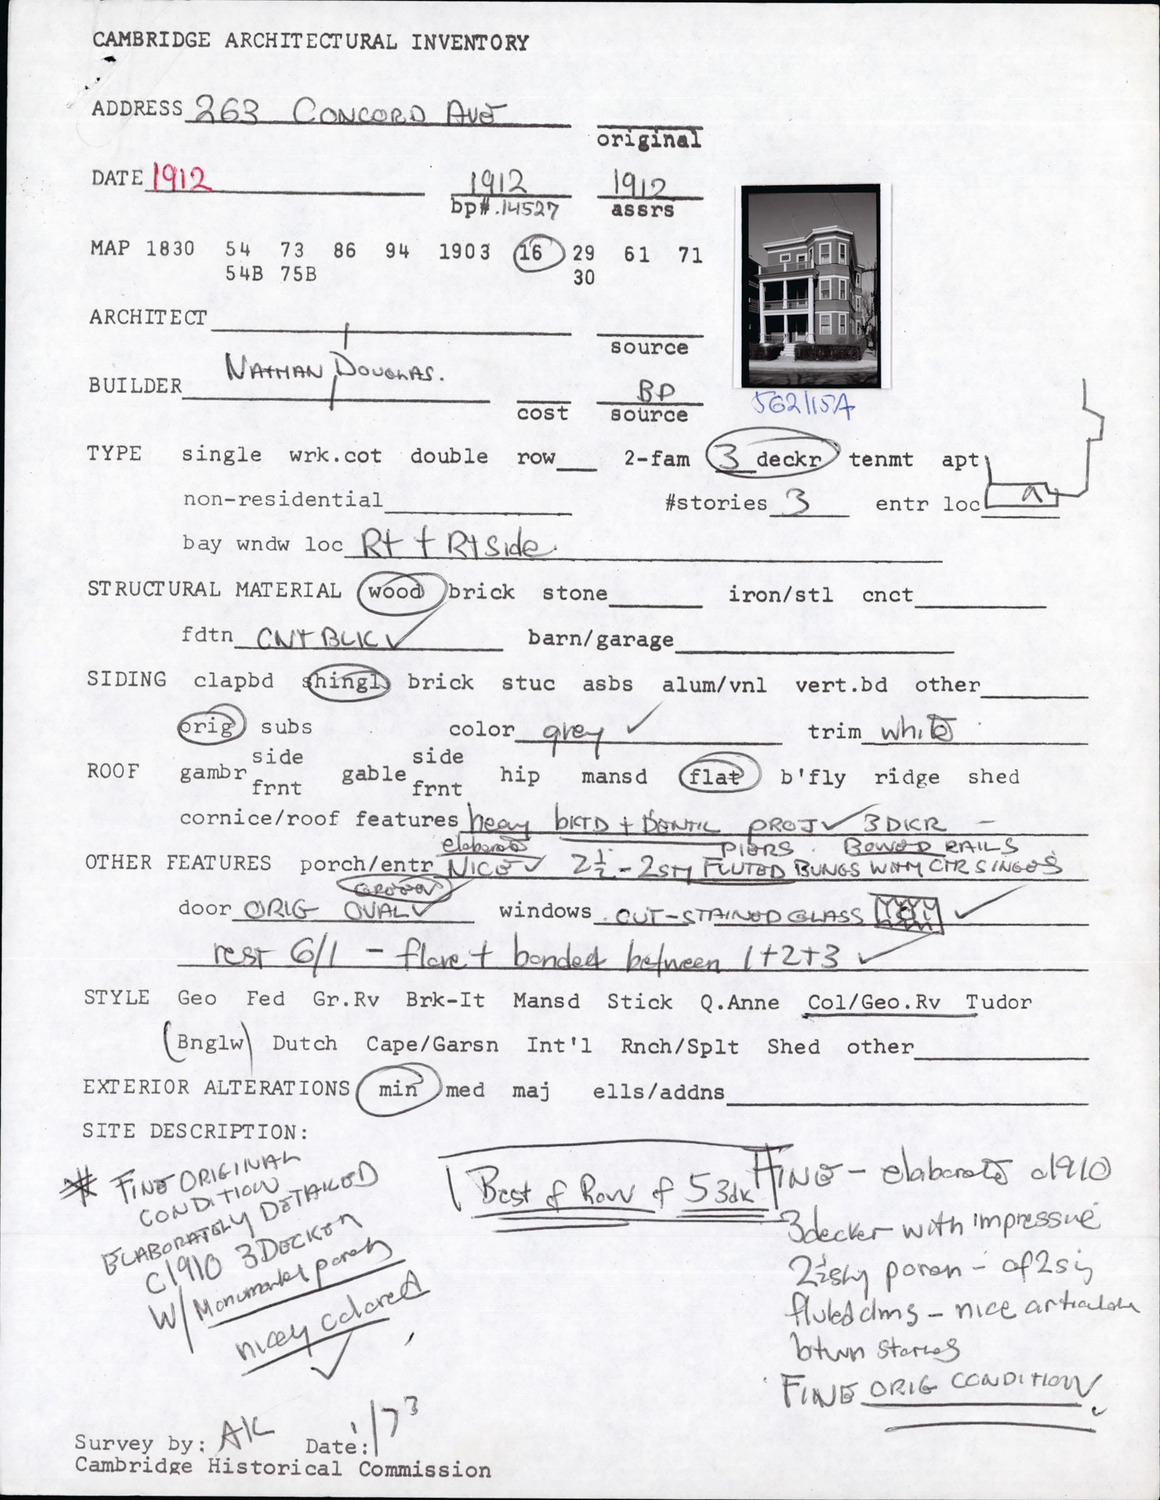 CAMBRIDGE ARCHITECTURAL INVENTORY
ADDRESS 263 CONCORD AVE
original
DATE 1912 1912 1912
bp#.14527 assrs
MAP 1830 54 73 86 94 1903 16 29 61 71
54B 75B 30
ARCHITECT
source
BUILDER NATHAN DOUGLAS. BP
cost source
562/15A
TYPE single wrk.cot double row 2-fam 3 deckr tenmt apt
non-residential #stories 3 entr loc a
bay wndw loc Rt + Rt Side
STRUCTURAL MATERIAL wood brick stone iron/stl cnct
fdtn CNT BLK barn/garage
SIDING clapbd shingl brick stuc asbs alum/vnl vert.bd other
orig subs color grey trim white
ROOF gambr side frnt gable side frnt hip mansd flat b'fly ridge shed
cornice/roof features heavy BKTD + DENTIL PROJ 3 DKR -
elaborate PIERS. BOWED RAILS
OTHER FEATURES porch/entr NICE 2½-2 sty FLUTED WITH CTR SINGES
door ORIG OVAL windows CUT-STAINED GLASS
rest 6/1 - flare + banded between 1+2+3
STYLE Geo Fed Gr.Rv Brk-It Mansd Stick Q.Anne Col/Geo.Rv Tudor
(Bnglw) Dutch Cape/Garsn Int'l Rnch/Splt Shed other
EXTERIOR ALTERATIONS min med maj ells/addns
SITE DESCRIPTION:
* FINE ORIGINAL
CONDITION
ELABORATELY DETAILED
C1910 3 DECKER
W/ Monumental porch
nicely colored
Best of Row of 5 3dk
FINE - elaborate c1910
3decker with impressive
2½ sty porch - of 2 sty
fluted clms - nice
btwn stories
FINE ORIG CONDITION
Survey by: AK Date: 1/73
Cambridge Historical Commission